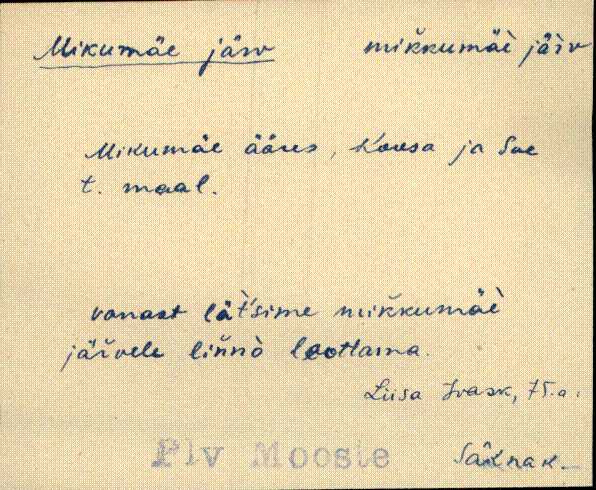 Mikumäe järv mikkumäè jä̀rv
Mikumäe ääres, Koosa ja Soe
t. maal.
vanast lät'sime mikkumäè
järvele linnò loottama.
Liisa Ivask, 75.a.
Plv Mooste Säknak.